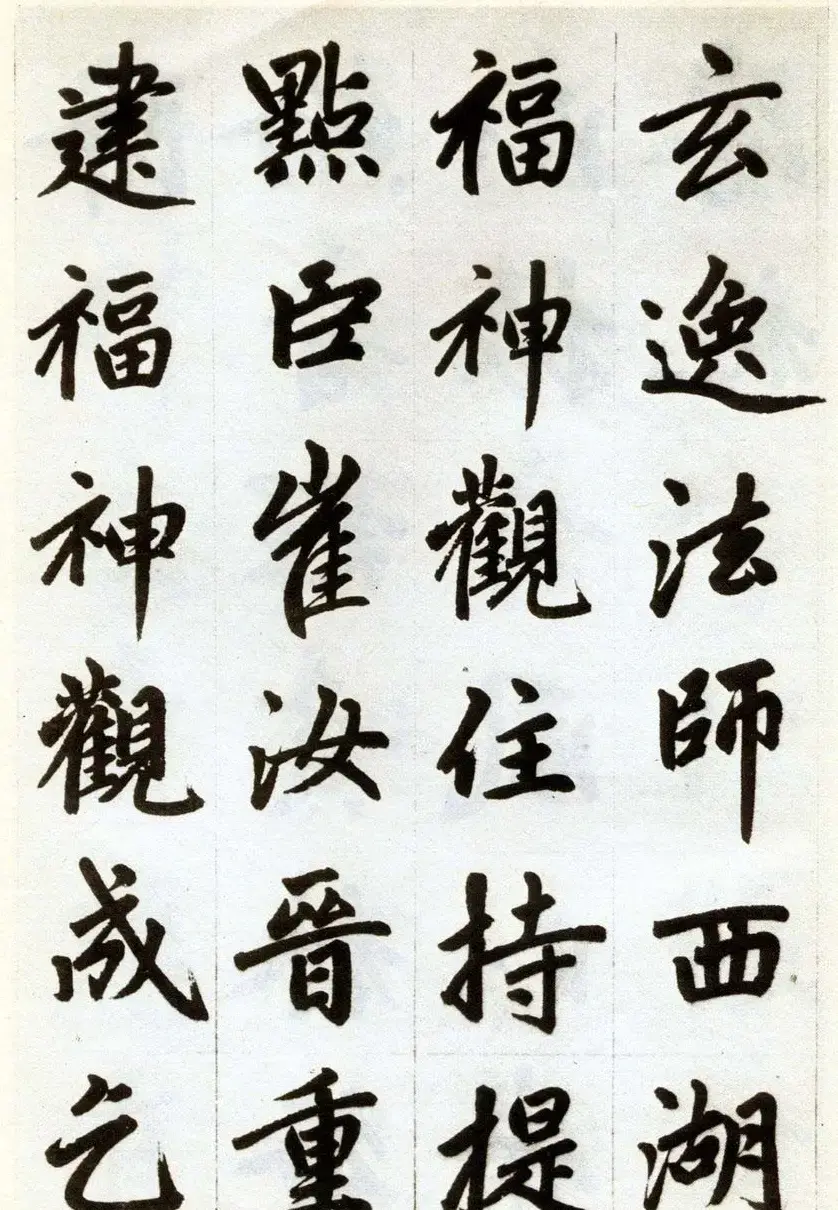 玄逸法師西湖
福神觀住持提
點臣崔汝晉重
建福神觀成乞